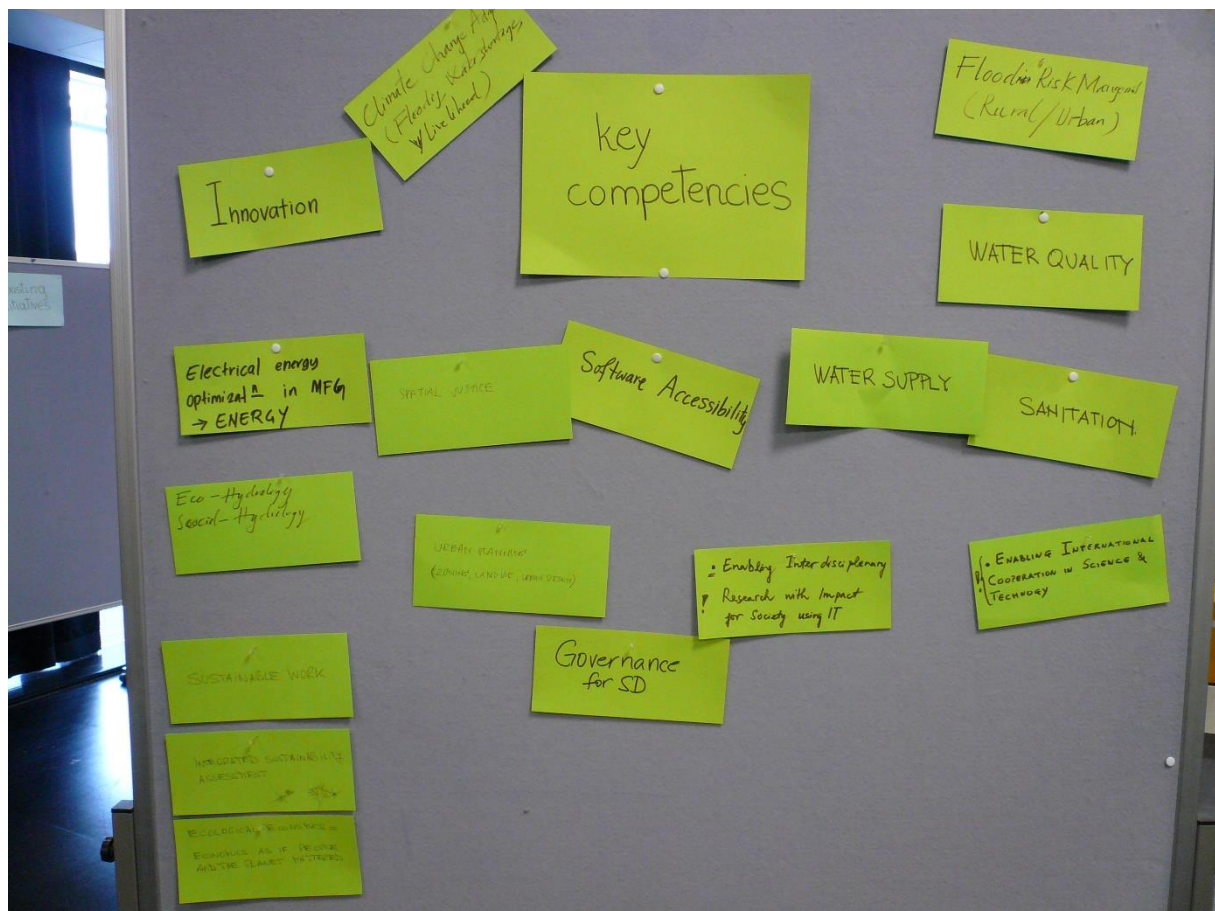 Climate Change
(Floods, Water shortages,
Livelihood)
key
competencies
Flood Risk
(Rural/Urban)
Innovation
WATER QUALITY
Electrical energy
optimizatn in MFG
→ ENERGY
SPATIAL JUSTICE
Software Accessibility
WATER SUPPLY
SANITATION.
Eco-Hydrology
Social-Hydrology
URBAN
(ZONING, LAND USE, URBAN DESIGN)
: Enabling Interdisciplenary
! Research with Impact
for Society using IT
! • ENABLING INTERNATIONAL
COOPERATION IN SCIENCE &
TECHNOGY
Governance
for SD
SUSTAINABLE WORK
INTEGRATED SUSTAINABILITY
ASSESSMENT
ECOLOGICAL ECONOMICS =
ECONOMICS AS IF PEOPLE
AND THE PLANET MATTERED.